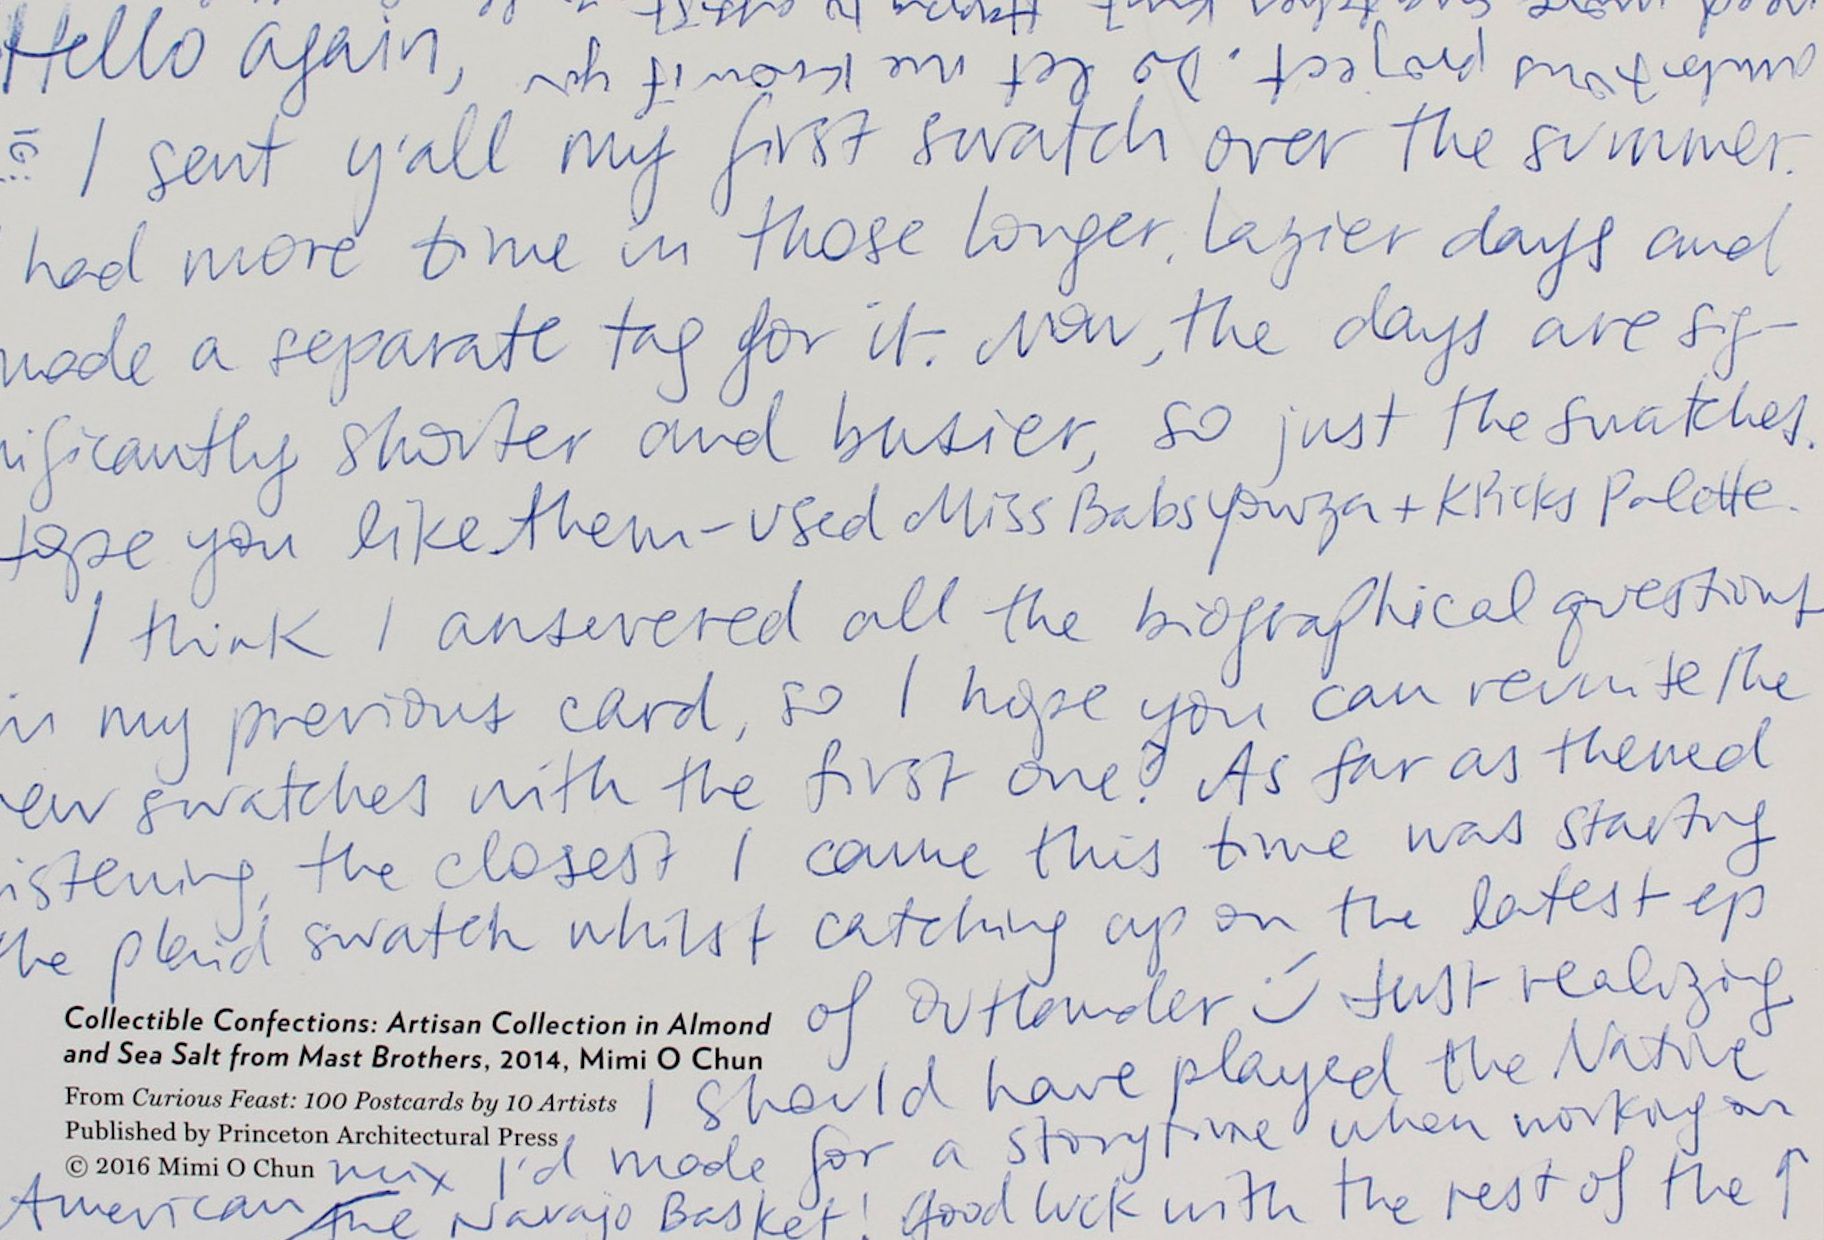 Hello again,
I sent y'all my first swatch over the summer.
had more time in those longer, lazier days and
made a separate tag for it. Now, the days are sig-
nificantly shorter and busier, so just the swatches.
Hope you like them - used Miss Babs Yowza + KPicks Palette.
I think I answered all the biographical questions
in my previous card, so I hope you can reunite the
new swatches with the first one? As far as themed
listening, the closest I came this time was starting
the plaid swatch whilst catching up on the latest ep
of Outlander :) Just realizing
I should have played the Native
American mix I'd made for a storytime when working on
the Navajo Basket! Good luck with the rest of the ↑
ambitious project. Do let me know if you
need more Happy to assist
IG:
Collectible Confections: Artisan Collection in Almond
and Sea Salt from Mast Brothers, 2014, Mimi O Chun
From Curious Feast: 100 Postcards by 10 Artists
Published by Princeton Architectural Press
© 2016 Mimi O Chun